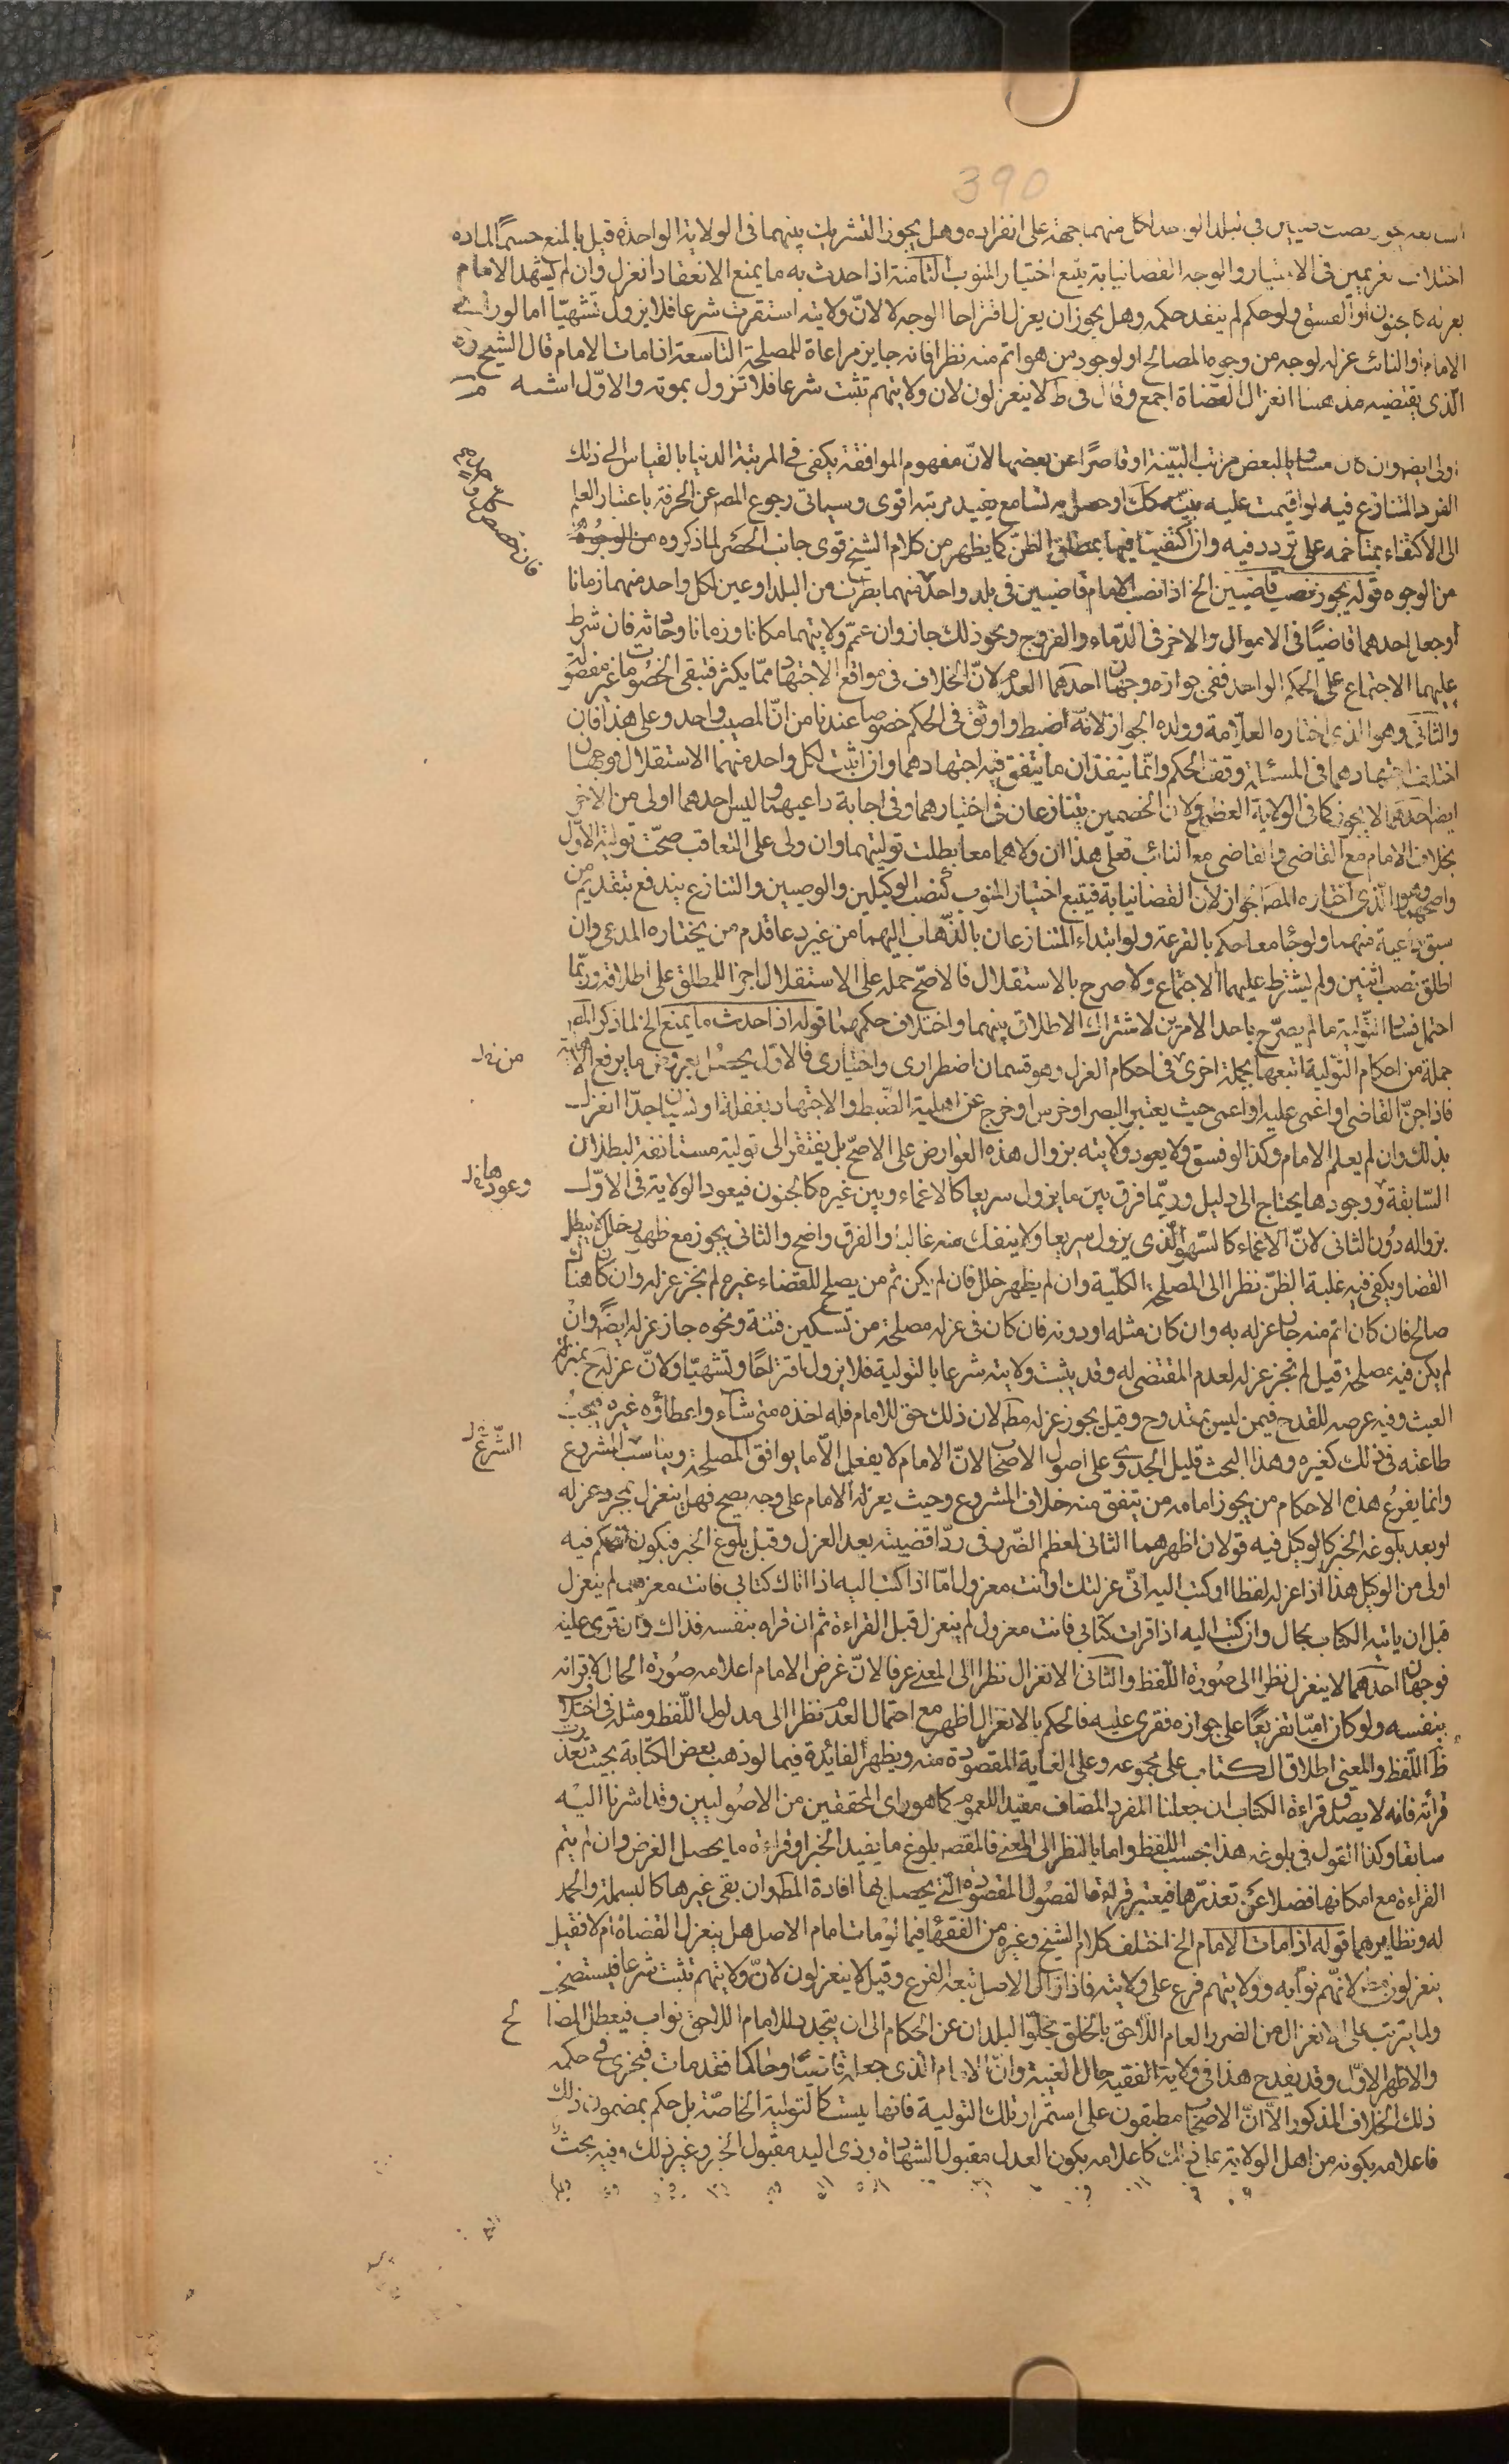 390
السابعة يجوز نصب قاضيين في البلد الواحد لكل منهما جهة على انفراده وهل يجوز التشريك بينهما فى الولاية الواحدة قيل بالمنع حسما لمادة
اختلاف الغريمين فى الاختيار والوجه الجواز لان القضا نيابة يتبع اختيار المنوب الثامنة اذا حدث به ما يمنع الانعقاد انعزل وان لم يشهد الامام
بعزله كالجنون او الفسق ولو حكم لم ينفذ حكمه وهل يجوز ان يعزل اقتراحا الوجه لا لانّ ولايته استقرت شرعا فلا يزول تشهيّا اما لو راى
الامام او النائب عزله لوجه من وجوه المصالح او لوجود من هو اتم منه نظرا فانه جايز مراعاة للمصلحة التاسعة اذا مات الامام قال الشيخ ره
الّذى يقتضيه مذهبنا انعزال القضاة اجمع وقال فى ط لا ينعزلون لان ولايتهم تثبت شرعا فلا تزول بموته والاوّل اشبه
اولى ايض وان كان مساويا لبعض مراتب البيّنة او قاصرًا عن بعضها لانّ مفهوم الموافقة يكفى فى المرتبة الدنيا بالقياس الى ذلك
الفرد المتنازع فيه لو اقيمت عليه بيّنة كك او حصل به تسامع يفيد مرتبة اقوى وسياتى رجوع المص عن الحرفة باعتبار العلم
الى الاكتفاء بمتاخمه على تردد فيه وان اكتفينا فيها بمطلق الظنّ كما يظهر من كلام الشيخ قوى جانب الحصر لما ذكروه من الوجوه
من الوجوه قوله يجوز نصب قاضيين الخ اذا نصب الامام قاضيين فى بلد واحد منهما بطرف من البلد او عين لكل واحد منهما زمانا
او جعل احدهما قاضيًا فى الاموال والاخر فى الدّماء والفروج ونحو ذلك جاز وان عمّم ولايتهما مكانا وزمانا وحادثة فان شرط
عليهما الاجتماع على الحكم الواحد ففى جوازه وجهان احدهما العدم لانّ الخلاف فى مواقع الاجتهاد ممّا يكثر فتبقى الخصومات غير مفصولة
والثانى وهو الذى اختاره العلّامة وولده الجواز لانّه اضبط واوثق فى الحكم خصوصا عندنا من انّ المصيب واحد وعلى هذا فان
اختلف اجتهادهما فى المسئلة وقف الحكم وانّما ينفذان ما يتفق فيه اجتهادهما وان اثبت لكل واحد منهما الاستقلال فوجهان
ايض احدهما لا يجوز كما فى الولاية العظمى ولان الخصمين يتنازعان فى اختيارهما وفى اجابة داعيهما وليس احدهما اولى من الاخر
بخلاف الامام مع القاضى والقاضى مع النائب فعلى هذا ان ولاهما معا بطلت توليتهما وان ولى على التعاقب صحّت تولية الاوّل
واصحهما وهو الّذى اختاره المص الجواز لان القضا نيابة فيتبع اختيار المنوب كنصب الوكيلين والوصيين والتنازع يندفع بتقديم من
سبق داعيه منهما ولو جاءا معا حكم بالقرعة ولو ابتداء المتنازعان بالذّهاب اليهما من غير دعا قدم من يختاره المدعى وان
اطلق نصب اثنين ولم يشترط عليهما الاجتماع ولا صرح بالاستقلال فالاصحّ حمله على الاستقلال اجزا للمطلق على اطلاقه وربّما
احتمل فساد التّولية ما لم يصرّح باحد الامرين لاشتراك الاطلاق بينهما واختلاف حكمهما قوله اذا حدث ما يمنع الخ لما ذكر المص
جملة من احكام التّولية اتبعها بجملة اخرى فى احكام العزل وهو قسمان اضطرارى واختيارى فالاوّل يحصل بعروض ما يرفع الاهلية
من خل
فاذا جنّ القاضى او اغمى عليه او اعمى حيث يعتبر البصر او خرس او خرج عن اهلية الضبط والاجتهاد بغفلة او نسيان احدّا انعزل
بذلك وان لم يعلم الامام وكذا لو فسق ولا يعود ولايته بزوال هذه العوارض على الاصحّ بل يفتقر الى تولية مستانفة لبطلان
السّابقة ووجودها يحتاج الى دليل وربّما فرق بين ما يزول سريعا كالاغماء وبين غيره كالجنون فيعود الولاية فى الاوّل
وعودها خل
بزواله دون الثانى لانّ الاغماء كالسّهو الّذى يزول سريعا ولا ينفك منه غالبا والفرق واضح والثانى يجوز مع ظهور خلل فيبطل
القضا ويكفى فيه غلبة الظنّ نظرا الى المصلحة الكلّية وان لم يظهر خلل فان لم يكن ثم من يصلح للقضاء غيره لم يجز عزله وان كان هناك
صالح فان كان اتم منه جاز عزله به وان كان مثله او دونه فان كان فى عزله مصلحة من تسكين فتنة ونحوه جاز عزله ايضًا وان
لم يكن فيه مصلحة قيل لم يجز عزله لعدم المقتضى له وقد يثبت ولايته شرعا بالتولية فلا يزول اقتراحًا وتشهيّا ولانّ عزله ح بمنزلة
العبث وفيه عرضه للقدح فيمن ليس بمقدوح وقيل يجوز عزله مط لان ذلك حق للامام فله اخذه متى شاء واعطاؤه غيره فيجب
طاعته فى ذلك كغيره وهذا البحث قليل الجدوى على اصول الاصحاب لانّ الامام لا يفعل الّا ما يوافق المصلحة ويناسب المشروع
الشّرع خل
وانما يفرع هذه الاحكام من يجوز امامة من يتفق منه خلاف المشروع وحيث يعزله الامام على وجه يصح فهل ينعزل بمجرد عزله
او بعد بلوغه الخبر كالوكيل فيه قولان اظهرهما الثانى لعظم الضّرر فى ردّ اقضيته بعد العزل وقبل بلوغ الخبر فيكون الحكم فيه
اولى من الوكيل هذا اذا عزله لفظا او كتب اليه انّى عزلتك او انت معزول امّا اذا كتب اليه اذا اتاك كتابى فانت معزول لم ينعزل
قبل ان ياتيه الكتاب بحال وان كتب اليه اذا قرات كتابى فانت معزول لم ينعزل قبل القراءة ثم ان قراه بنفسه فذاك وان قرى عليه
فوجهان احدهما لا ينعزل نظرا الى صورة اللّفظ والثانى الانعزال نظرا الى المعنى عرفا لانّ غرض الامام اعلامه صورة الحال لا قرائه
بنفسه ولو كان امّيا تفريعًا على جوازه فقرى عليه فالحكم بالانعزال اظهر مع احتمال العدم نظرا الى مدلول اللّفظ ومثله فى اختلاف
ظ اللّفظ والمعنى اطلاق الكتاب على مجموعه وعلى الغاية المقصودة منه ويظهر الفائدة فيما لو ذهب بعض الكتابة بحيث تعذرت
قرائته فانه لا يصدق قراءة الكتاب ان جعلنا المفرد المضاف مفيدا للعموم كما هو راى المحققين من الاصوليين وقد اشرنا اليه
سابقا وكذا القول فى بلوغه هذا بحسب اللّفظ واما بالنظر الى المعنى فالمقص بلوغ ما يفيد الخبر او قراءة ما يحصل الغرض وان لم يتم
القراءة مع امكانها فضلا عن تعذّرها فيعتبر قراءة الفصول المقصودة الّتى يحصل بها افادة المط وان بقى غيرها كالبسملة والحمد
له ونظايرهما قوله اذا مات الامام الخ اختلف كلام الشيخ وغيره من الفقهاء فيما لو مات امام الاصل هل ينعزل القضاة ام لا فقيل
ينعزلون مط لانّهم نوّابه وولايتهم فرع على ولايته فاذا زال الاصل تبعه الفرع وقيل لا ينعزلون لانّ ولايتهم تثبت شرعا فيستصحب
ولما يترتب على الانعزال من الضرر العام اللّاحق بالخلق بخلوّ البلدان عن الحكام الى ان يتجدد للامام اللاحق نواب فيعطل المصالح
والاظهر الاوّل وقد يقدح هذا فى ولاية الفقيه حال الغيبة وانّ الامام الذى جعله قاضيًا وحاكما قد مات فيجرى فى حكمه
ذلك الخلاف المذكور الّا انّ الاصحاب مطبقون على استمرار تلك التولية فانها ليست كالتولية الخاصّة بل حكم بمضمون ذلك
فاعلامه بكونه من اهل الولاية على ذلك كاعلامه بكون العدل مقبول الشهادة وذى اليد مقبول الخبر وغير ذلك وفيه بحث